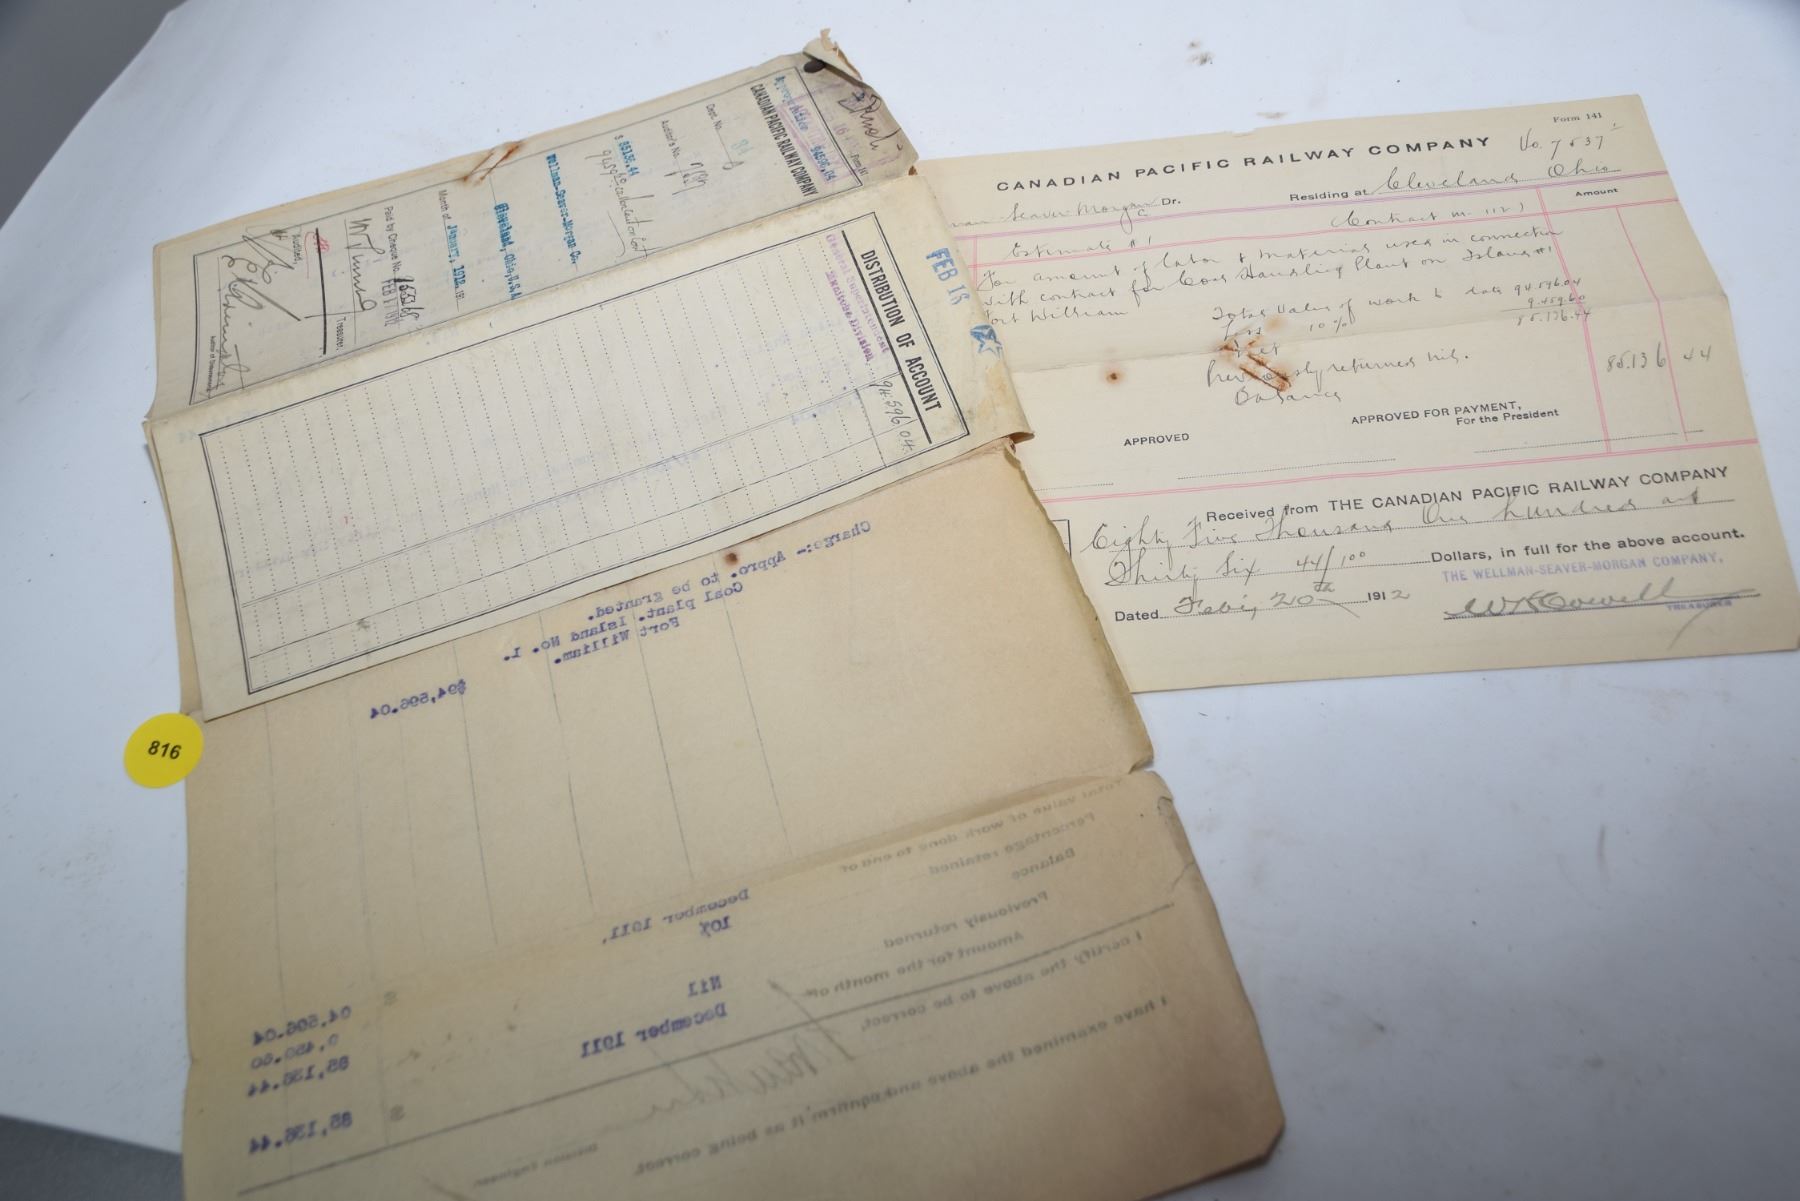 Form 141
CANADIAN PACIFIC RAILWAY COMPANY
No. 7537
Seaver Morgan Dr.
Residing at Cleveland Ohio
Amount
Estimate #1
(Contract m. 112)
For amount of labor & material used in connection
with contract for Coal Handling Plant on Island #1
Fort William
Total Value of work to date 94.596.04
Less 10% 9.459.60
Net 85.136.44
Previously returned nil.
Balance
85.136 44
APPROVED
APPROVED FOR PAYMENT,
For the President
Received from THE CANADIAN PACIFIC RAILWAY COMPANY
Eighty Five Thousand One hundred and
Thirty Six 44/100 Dollars, in full for the above account.
THE WELLMAN-SEAVER-MORGAN COMPANY,
Dated Feb'y 20th 1912
TREASURER
Final
CANADIAN PACIFIC RAILWAY COMPANY
94596.04
Dept. No.
Auditor's No.
$ 85136.44
Wellman-Seaver-Morgan Co.
Cleveland, Ohio, U.S.A.
Month of January, 1912. 191
Paid by Cheque No.
FEB 17 1912
Treasurer.
Audited,
FEB 16
DISTRIBUTION OF ACCOUNT
General Superintendent
Manitoba Division
94.596 04
Charge:- Appro. to be granted.
Coal plant. Island No. 1.
Fort William.
$94,596.04
816
Total value of work done to end of December 1911,
$ 94,596.04
Percentage retained 10% 9,459.60
Balance 85,136.44
Previously returned Nil
Amount for the month of December 1911 $ 85,136.44
I certify the above to be correct,
Division Engineer.
I have examined the above and confirm it as being correct.